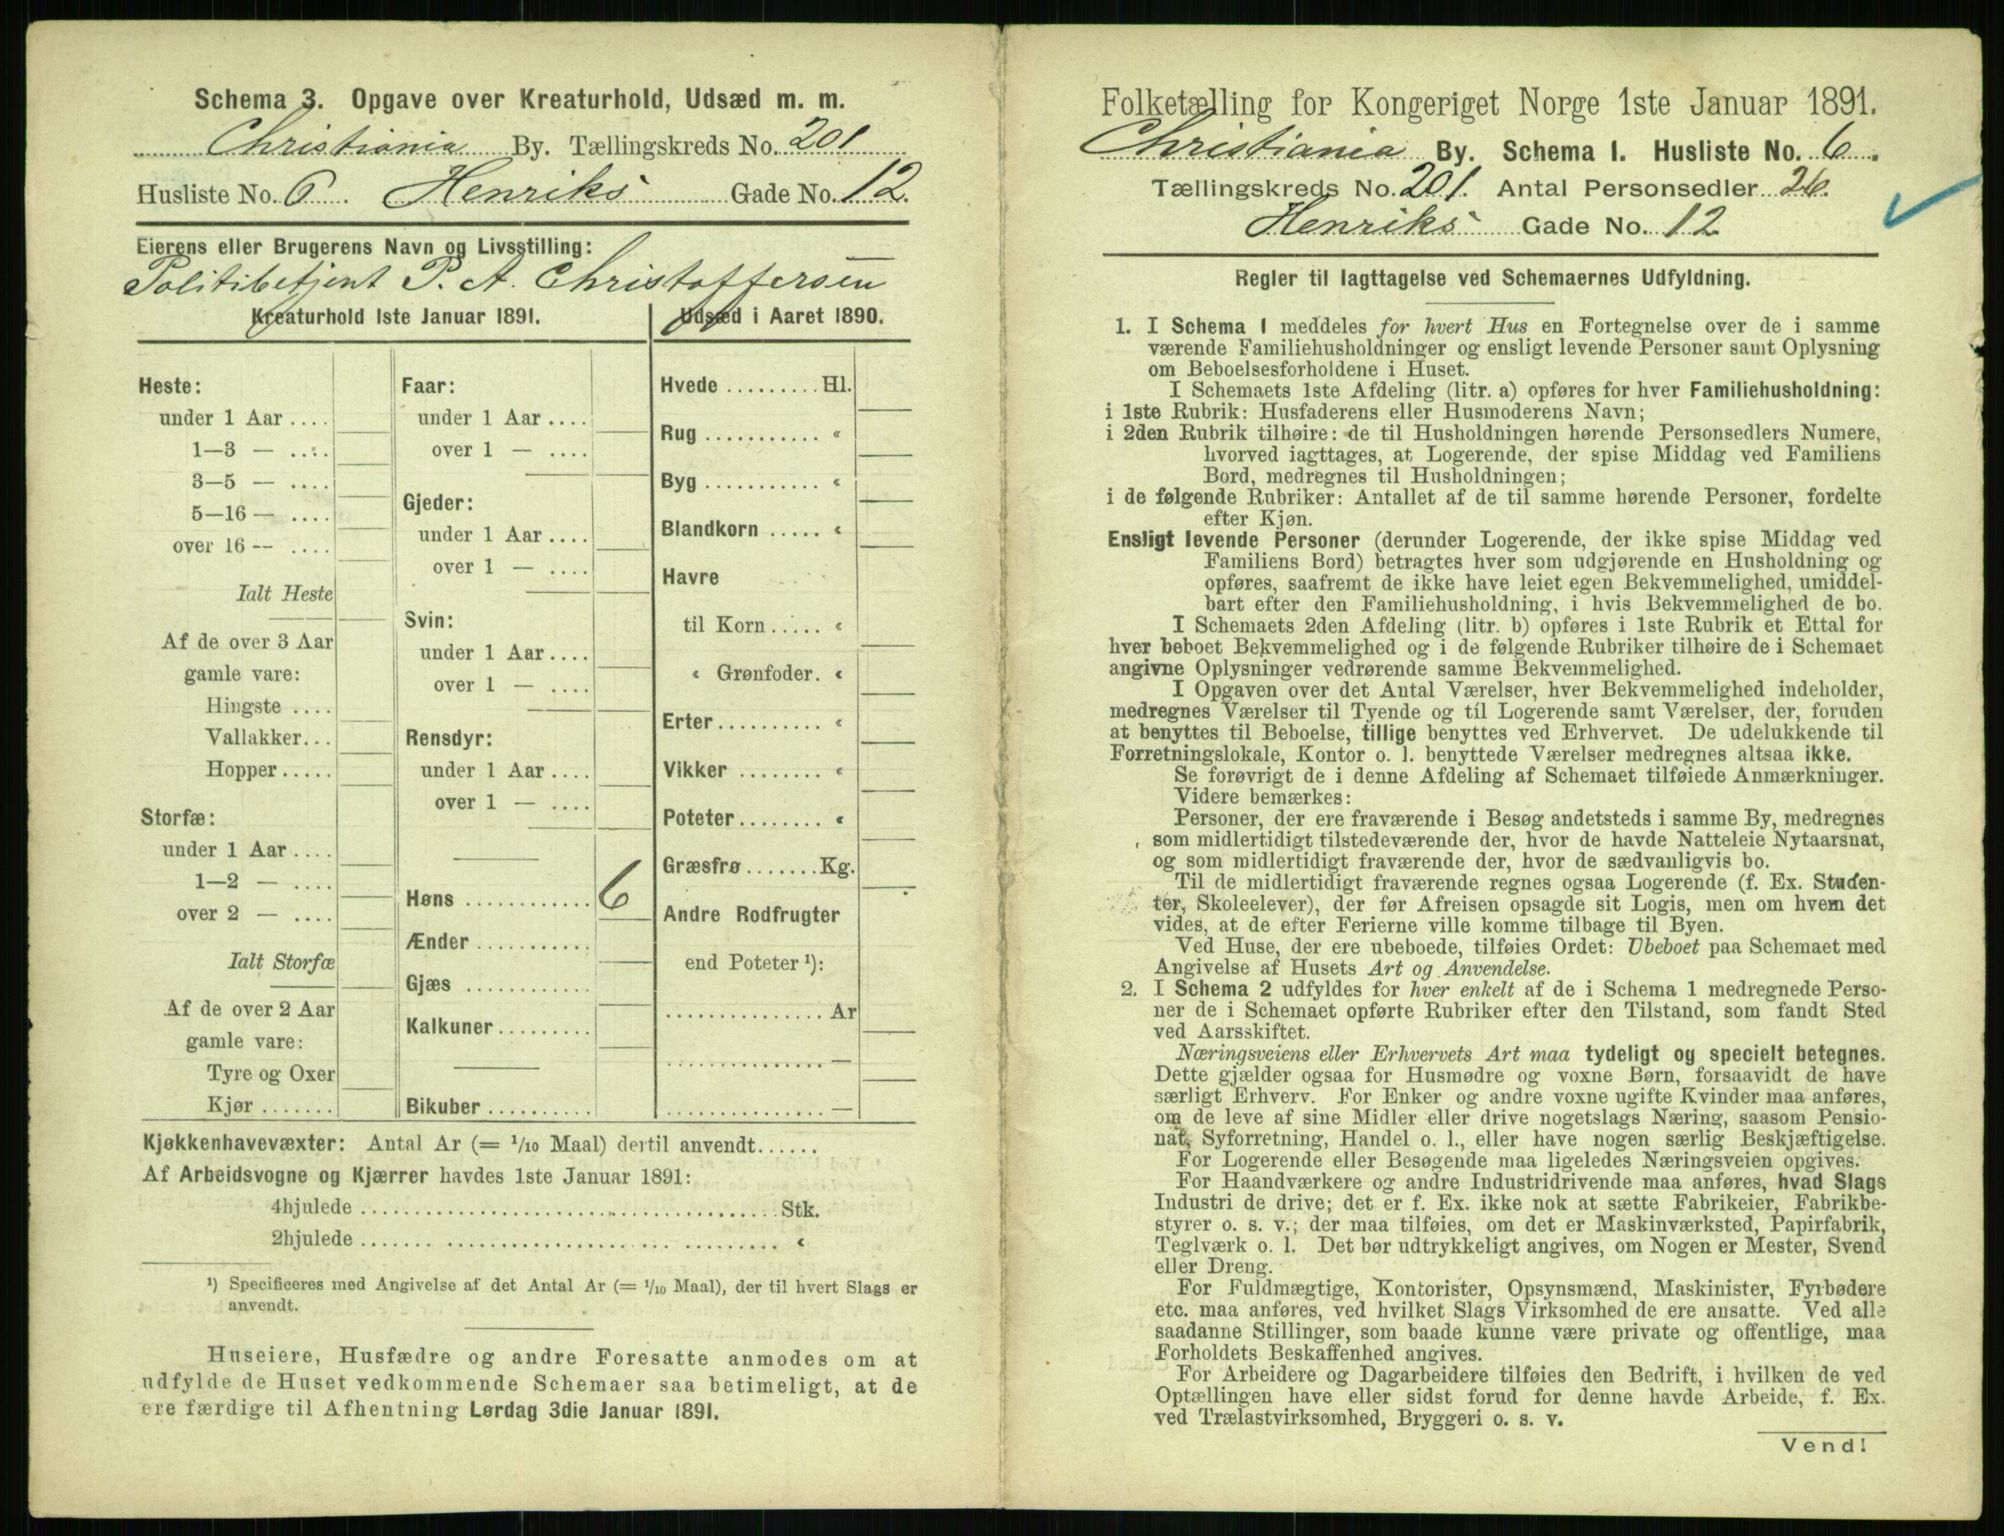 Schema 3. Opgave over Kreaturhold, Udsæd m. m.
Christiania By. Tællingskreds No. 201
Husliste No. 6. Henriks Gade No. 12.
Eierens eller Brugerens Navn og Livsstilling:
Politibetjent P. A. Christoffersen
Kreaturhold 1ste Januar 1891.
Heste:
under 1 Aar ....
1—3 — ....
3—5 — ....
5—16 — ....
over 16 — ....
Ialt Heste
Af de over 3 Aar
gamle vare:
Hingste ....
Vallakker...
Hopper.....
Storfæ:
under 1 Aar ....
1—2 — ....
over 2 — ....
Ialt Storfæ
Af de over 2 Aar
gamle vare:
Tyre og Oxer
Kjør .......
Faar:
under 1 Aar ....
over 1 — ....
Gjeder:
under 1 Aar ....
over 1 — ....
Svin:
under 1 Aar ....
over 1 — ....
Rensdyr:
under 1 Aar ....
over 1 — ....
Høns ............ 6
Ænder ...........
Gjæs ............
Kalkuner .........
Bikuber ..........
Udsæd i Aaret 1890.
Hvede ......... Hl.
Rug ........... «
Byg ........... «
Blandkorn ..... «
Havre
til Korn ..... «
« Grønfoder. «
Erter .......... «
Vikker ......... «
Poteter ........ «
Græsfrø ....... Kg.
Andre Rodfrugter
end Poteter ¹):
............... Ar
............... —
............... —
Kjøkkenhavevæxter: Antal Ar (= 1/10 Maal) dertil anvendt......
Af Arbeidsvogne og Kjærrer havdes 1ste Januar 1891:
4hjulede ........................................ Stk.
2hjulede ........................................ «
¹) Specificeres med Angivelse af det Antal Ar (= 1/10 Maal), der til hvert Slags er
anvendt.
Huseiere, Husfædre og andre Foresatte anmodes om at
udfylde de Huset vedkommende Schemaer saa betimeligt, at de
ere færdige til Afhentning Lørdag 3die Januar 1891.
Folketælling for Kongeriget Norge 1ste Januar 1891.
Christiania By. Schema 1. Husliste No. 6.
Tællingskreds No. 201. Antal Personsedler 26.
Henriks Gade No. 12
Regler til Iagttagelse ved Schemaernes Udfyldning.
1. I Schema 1 meddeles for hvert Hus en Fortegnelse over de i samme
værende Familiehusholdninger og ensligt levende Personer samt Oplysning
om Beboelsesforholdene i Huset.
I Schemaets 1ste Afdeling (litr. a) opføres for hver Familiehusholdning:
i 1ste Rubrik: Husfaderens eller Husmoderens Navn;
i 2den Rubrik tilhøire: de til Husholdningen hørende Personsedlers Numere,
hvorved iagttages, at Logerende, der spise Middag ved Familiens
Bord, medregnes til Husholdningen;
i de følgende Rubriker: Antallet af de til samme hørende Personer, fordelte
efter Kjøn.
Ensligt levende Personer (derunder Logerende, der ikke spise Middag ved
Familiens Bord) betragtes hver som udgjørende en Husholdning og
opføres, saafremt de ikke have leiet egen Bekvemmelighed, umiddel-
bart efter den Familiehusholdning, i hvis Bekvemmelighed de bo.
I Schemaets 2den Afdeling (litr. b) opføres i 1ste Rubrik et Ettal for
hver beboet Bekvemmelighed og i de følgende Rubriker tilhøire de i Schemaet
angivne Oplysninger vedrørende samme Bekvemmelighed.
I Opgaven over det Antal Værelser, hver Bekvemmelighed indeholder,
medregnes Værelser til Tyende og til Logerende samt Værelser, der, foruden
at benyttes til Beboelse, tillige benyttes ved Erhvervet. De udelukkende til
Forretningslokale, Kontor o. l. benyttede Værelser medregnes altsaa ikke.
Se forøvrigt de i denne Afdeling af Schemaet tilføiede Anmærkninger.
Videre bemærkes:
Personer, der ere fraværende i Besøg andetsteds i samme By, medregnes
som midlertidigt tilstedeværende der, hvor de havde Natteleie Nytaarsnat,
og som midlertidigt fraværende der, hvor de sædvanligvis bo.
Til de midlertidigt fraværende regnes ogsaa Logerende (f. Ex. Studen-
ter, Skoleelever), der før Afreisen opsagde sit Logis, men om hvem det
vides, at de efter Ferierne ville komme tilbage til Byen.
Ved Huse, der ere ubeboede, tilføies Ordet: Ubeboet paa Schemaet med
Angivelse af Husets Art og Anvendelse.
2. I Schema 2 udfyldes for hver enkelt af de i Schema 1 medregnede Perso-
ner de i Schemaet opførte Rubriker efter den Tilstand, som fandt Sted
ved Aarsskiftet.
Næringsveiens eller Erhvervets Art maa tydeligt og specielt betegnes.
Dette gjælder ogsaa for Husmødre og voxne Børn, forsaavidt de have
særligt Erhverv. For Enker og andre voxne ugifte Kvinder maa anføres,
om de leve af sine Midler eller drive nogetslags Næring, saasom Pensio-
nat, Syforretning, Handel o. l., eller have nogen særlig Beskjæftigelse.
For Logerende eller Besøgende maa ligeledes Næringsveien opgives.
For Haandværkere og andre Industridrivende maa anføres, hvad Slags
Industri de drive; det er f. Ex. ikke nok at sætte Fabrikeier, Fabrikbe-
styrer o. s. v.; der maa tilføies, om det er Maskinværksted, Papirfabrik,
Teglværk o. l. Det bør udtrykkeligt angives, om Nogen er Mester, Svend
eller Dreng.
For Fuldmægtige, Kontorister, Opsynsmænd, Maskinister, Fyrbødere
etc. maa anføres, ved hvilket Slags Virksomhed de ere ansatte. Ved alle
saadanne Stillinger, som baade kunne være private og offentlige, maa
Forholdets Beskaffenhed angives.
For Arbeidere og Dagarbeidere tilføies den Bedrift, i hvilken de ved
Optællingen have eller sidst forud for denne havde Arbeide, f. Ex.
ved Trælastvirksomhed, Bryggeri o. s. v.
Vend!